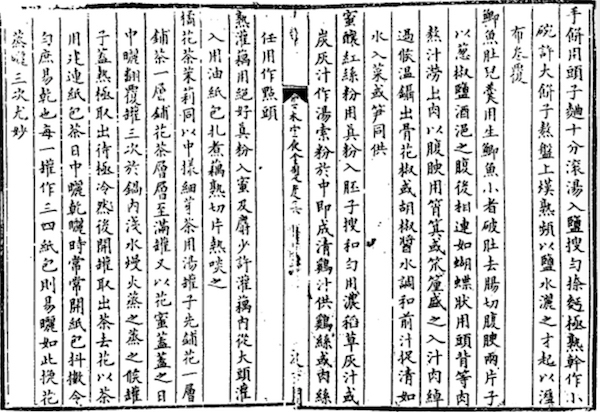 手餅用頭子麵十分滾湯入鹽搜勻捺麪極熟幹作小
碗許大餅子熬盤上煿熟頻以鹽水灑之才起以濕
布卷覆
鯽魚肚兒羹用生鯽魚小者破肚去腸切腹腴兩片子
以葱椒鹽酒浥之腹後相連如蝴蝶狀用頭背等肉
熬汁撈出肉以腹腴用筲箕或笊籬盛之入汁肉綽
過候溫鑷出骨花椒或胡椒醬水調和前汁捉清如
水入菜或笋同供
蜜釀紅絲粉用真粉入胚子搜和勻用濃稻草灰汁或
炭灰汁作湯索粉於中即成清鷄汁供鷄絲或肉絲
任用作點頭
熟灌藕用絕好真粉入蜜及麝少許灌藕內從大頭灌
入用油紙包扎煮藕熟切片熱啖之
橘花茶茉莉同以中樣細芽茶用湯罐子先鋪花一層
鋪茶一層鋪花茶層層至滿罐又以花蜜蓋蓋之日
中曬翻覆罐三次於鍋內淺水熳火蒸之蒸之候罐
子蓋熱極取出待極冷然後開罐取出茶去花以茶
用連紙包茶日中曬乾曬時常常開紙包抖擻令
勻庶易乾也每一罐作三四紙包則易曬如此換花
蒸曬三次尤妙